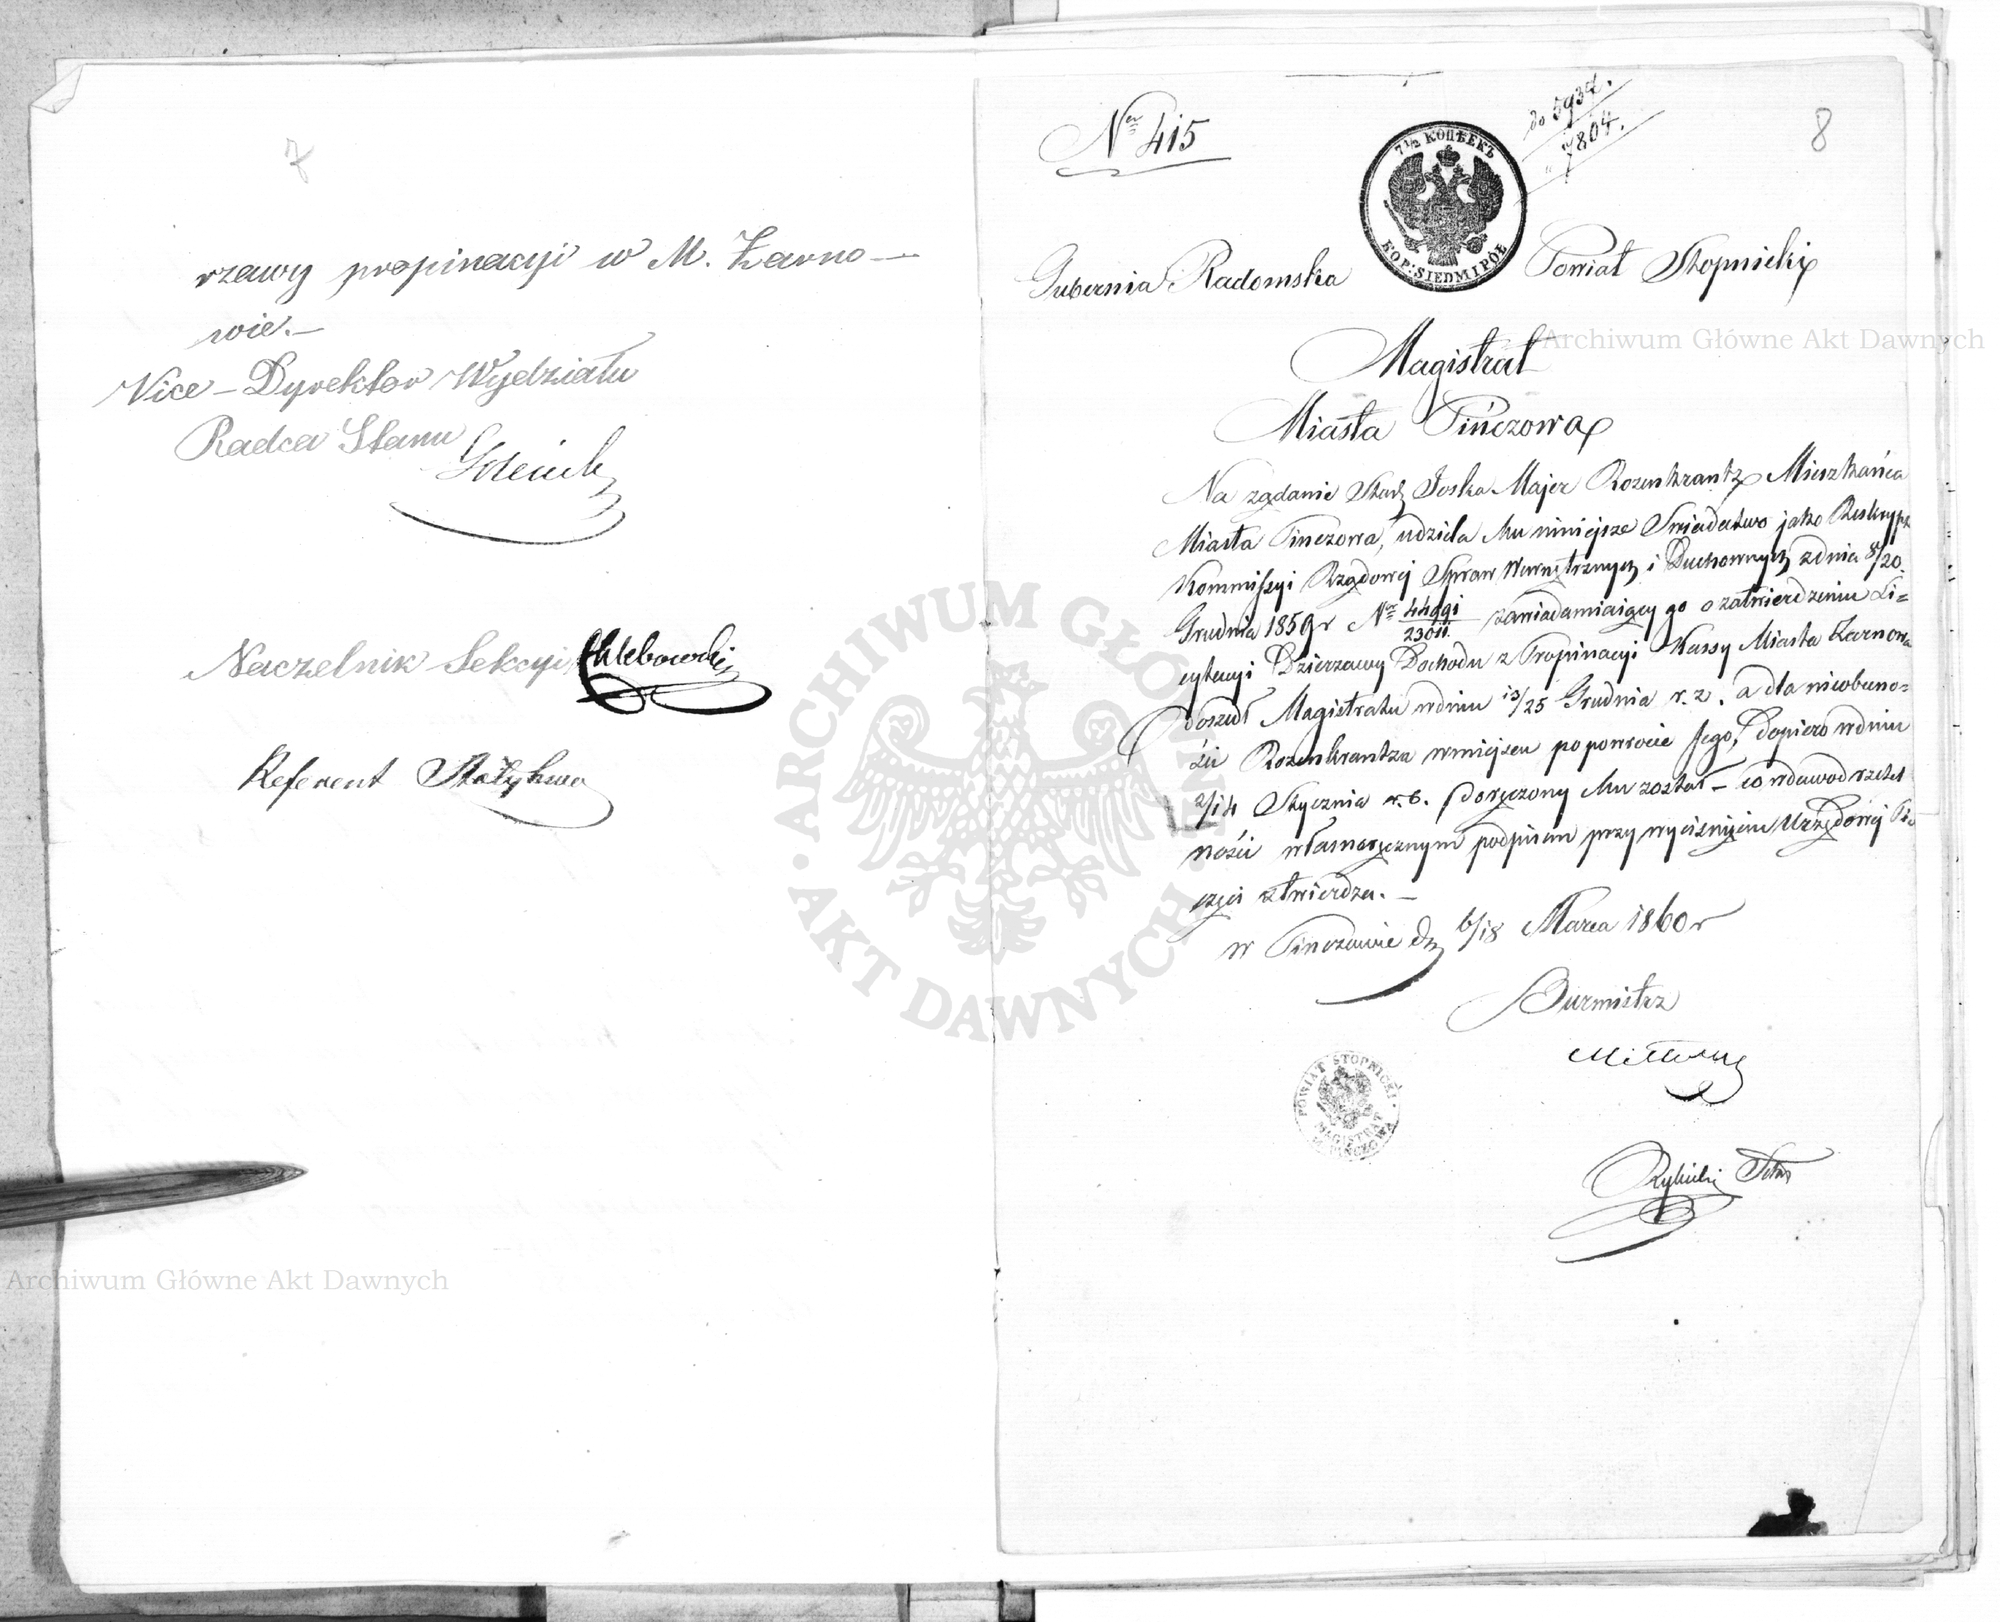 7
rzawy propinacyi w M. Żarno-
wie.-
Vice-Dyrektor Wydziału
Radca Stanu
Naczelnik Sekcyi Chlebowski
Referent
Nr 415
7½ КОПѢЕКЪ
KOP: SIEDM I PÓŁ
do 5937.
" 7804.
8
Gubernia Radomska Powiat Stopnicki
Magistrat
Miasta Pińczowa
Na żądanie Joska Majer Rozenkrantz Mieszkańca
Miasta Pinczowa, udziela Mu niniejsze Swiadectwo jako Reskrypt
Kommissyi Rządowej Spraw Wewnętrznych i Duchownych z dnia 8/20.
Grudnia 1859 r Nr 44991/23011 zawiadamiaiący go o zatwierdzeniu Li=
cytacyi Dzierzawy Dochodu z Propinacyi Kassy Miasta Żarnowa
doszedł Magistratu w dniu 13/25 Grudnia r. z. a dla nieobecno=
ści Rozenkrantza w miejscu po powrocie Jego, dopiero w dniu
2/14 Stycznia r. b. doręczony Mu został - co w dowod rzetel
ności własnoręcznym podpisem przy wyciśnięciu Urzędowej Pie
częci stwierdza.-
w Pinczowie d. 6/18 Marca 1860 r
Burmistrz
POWIAT STOPNICKI
MAGISTRAT
M. PINCZOWA
Rybicki
Archiwum Główne Akt Dawnych
Archiwum Główne Akt Dawnych
ARCHIWUM GŁÓWNE AKT DAWNYCH